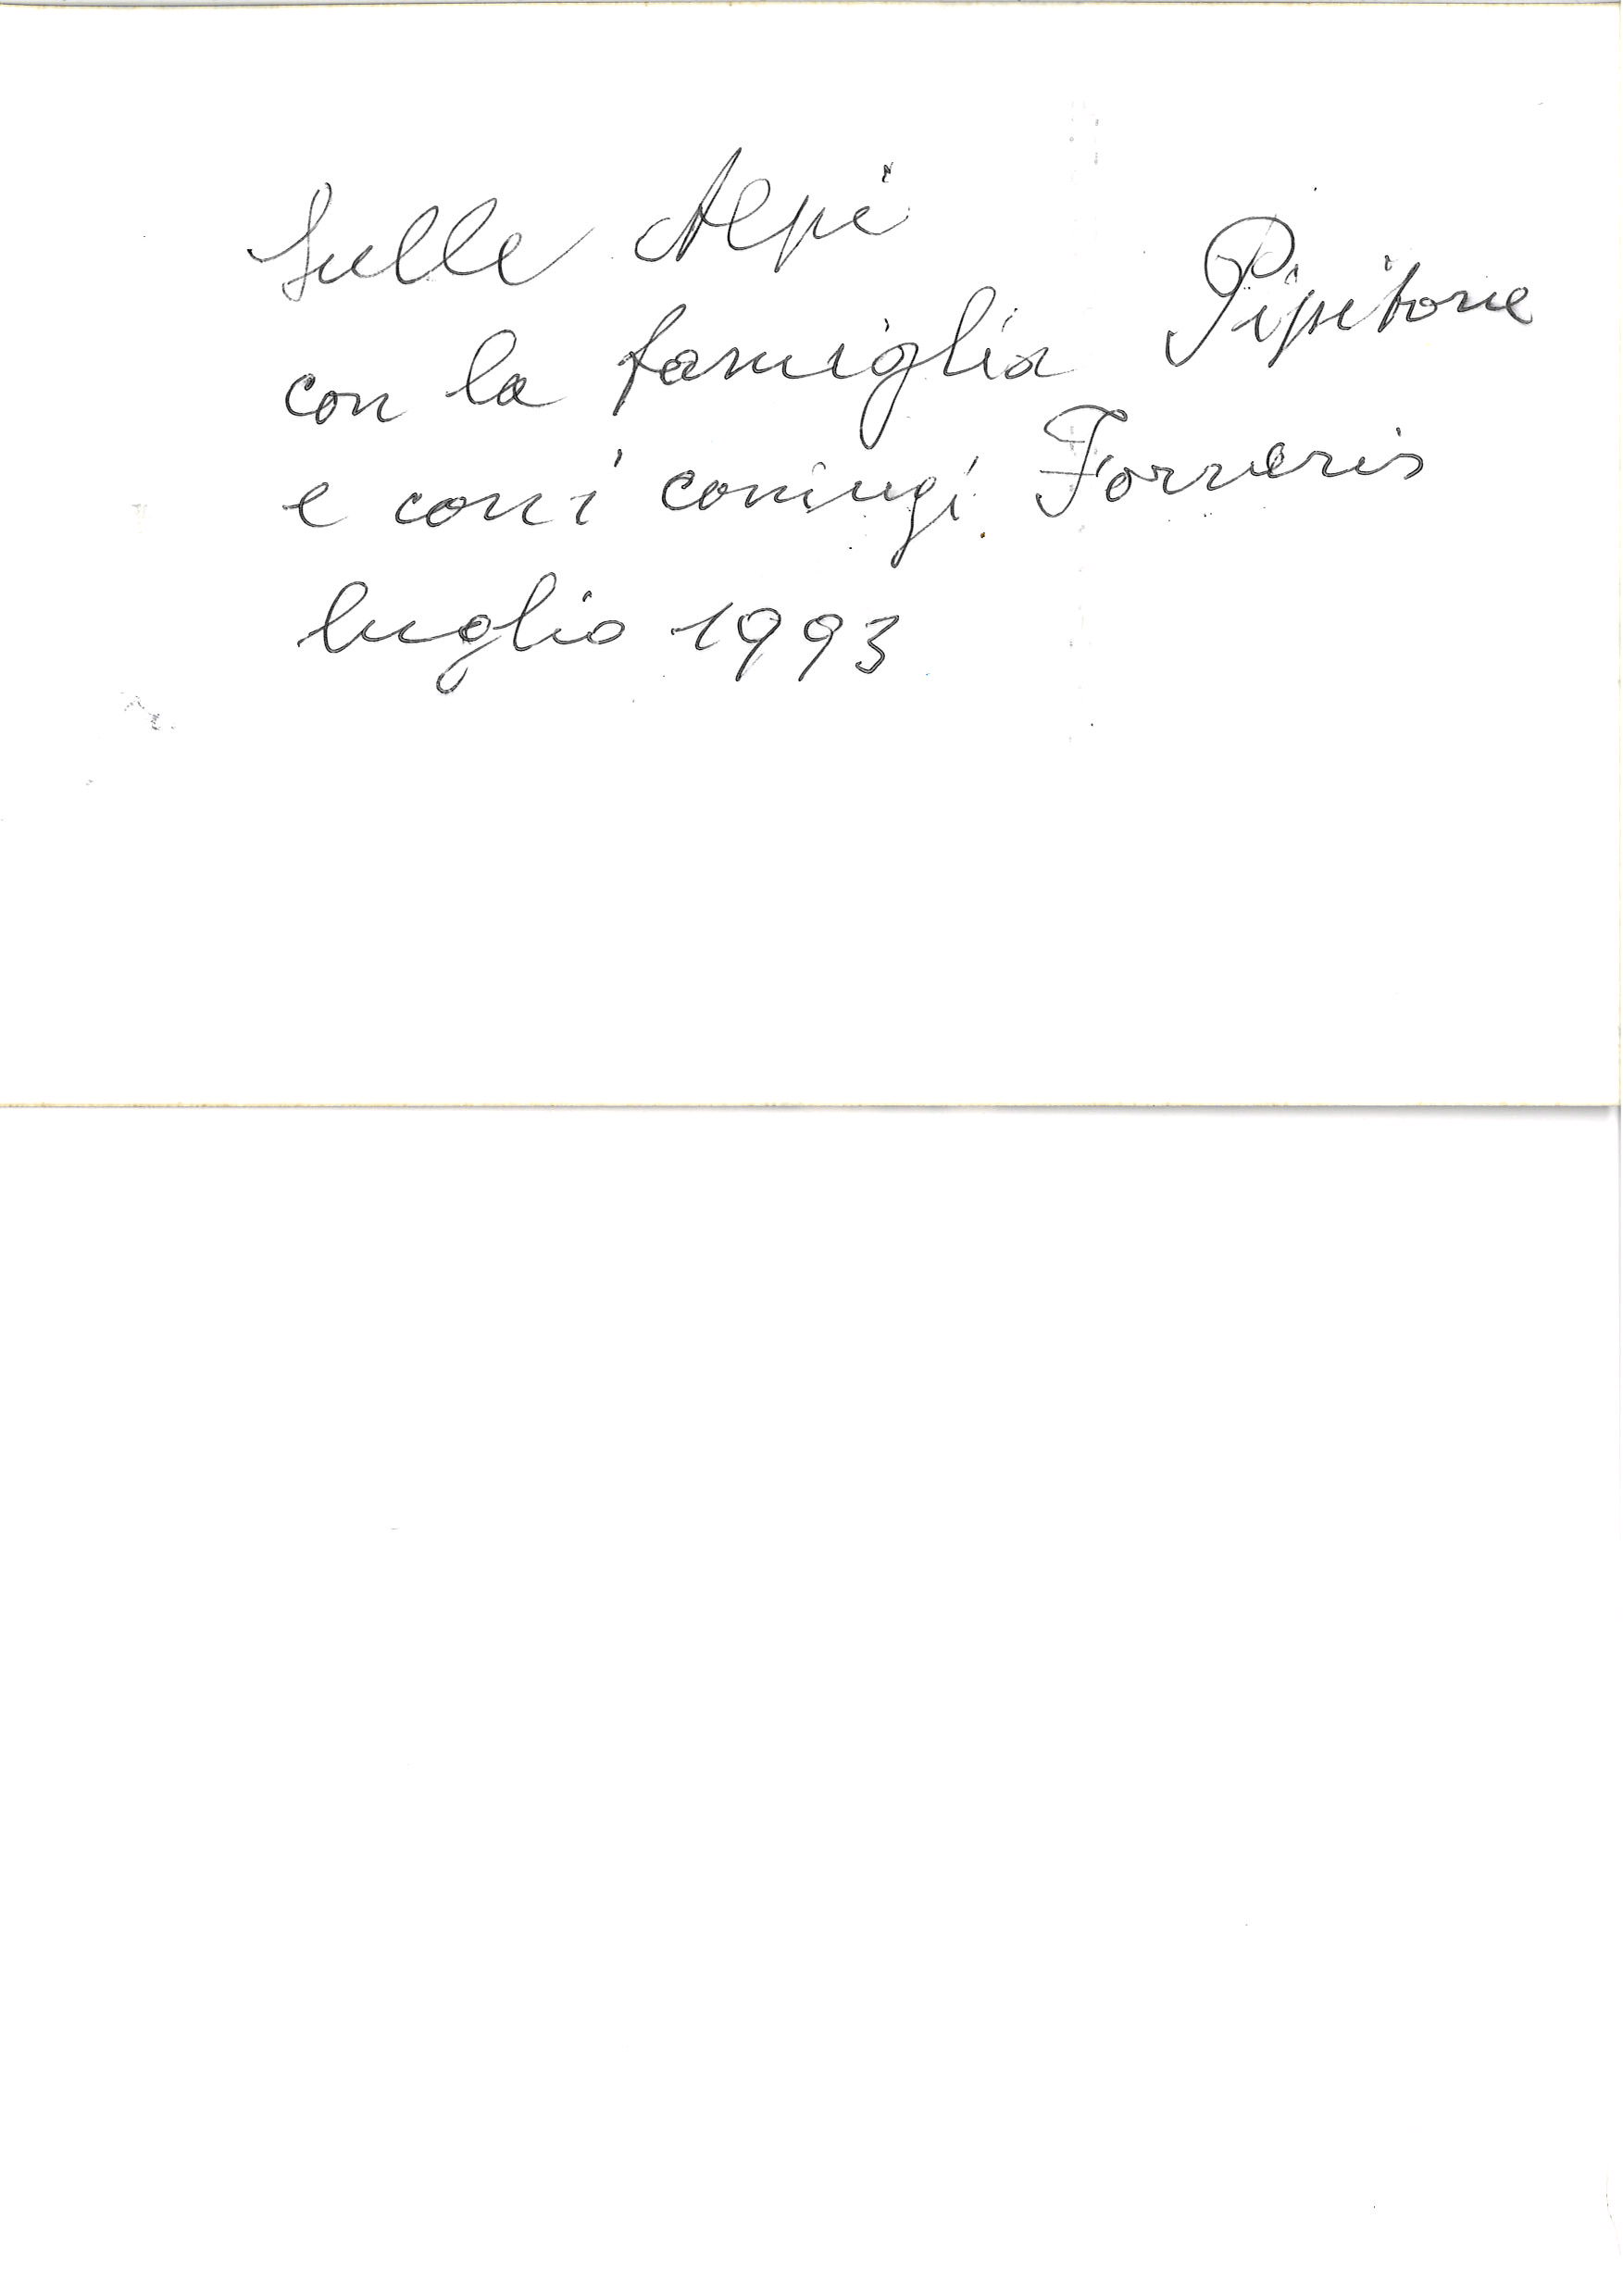 Sulle Alpi
con la famiglia Pipitone
e con i coniugi Forneris
luglio 1993